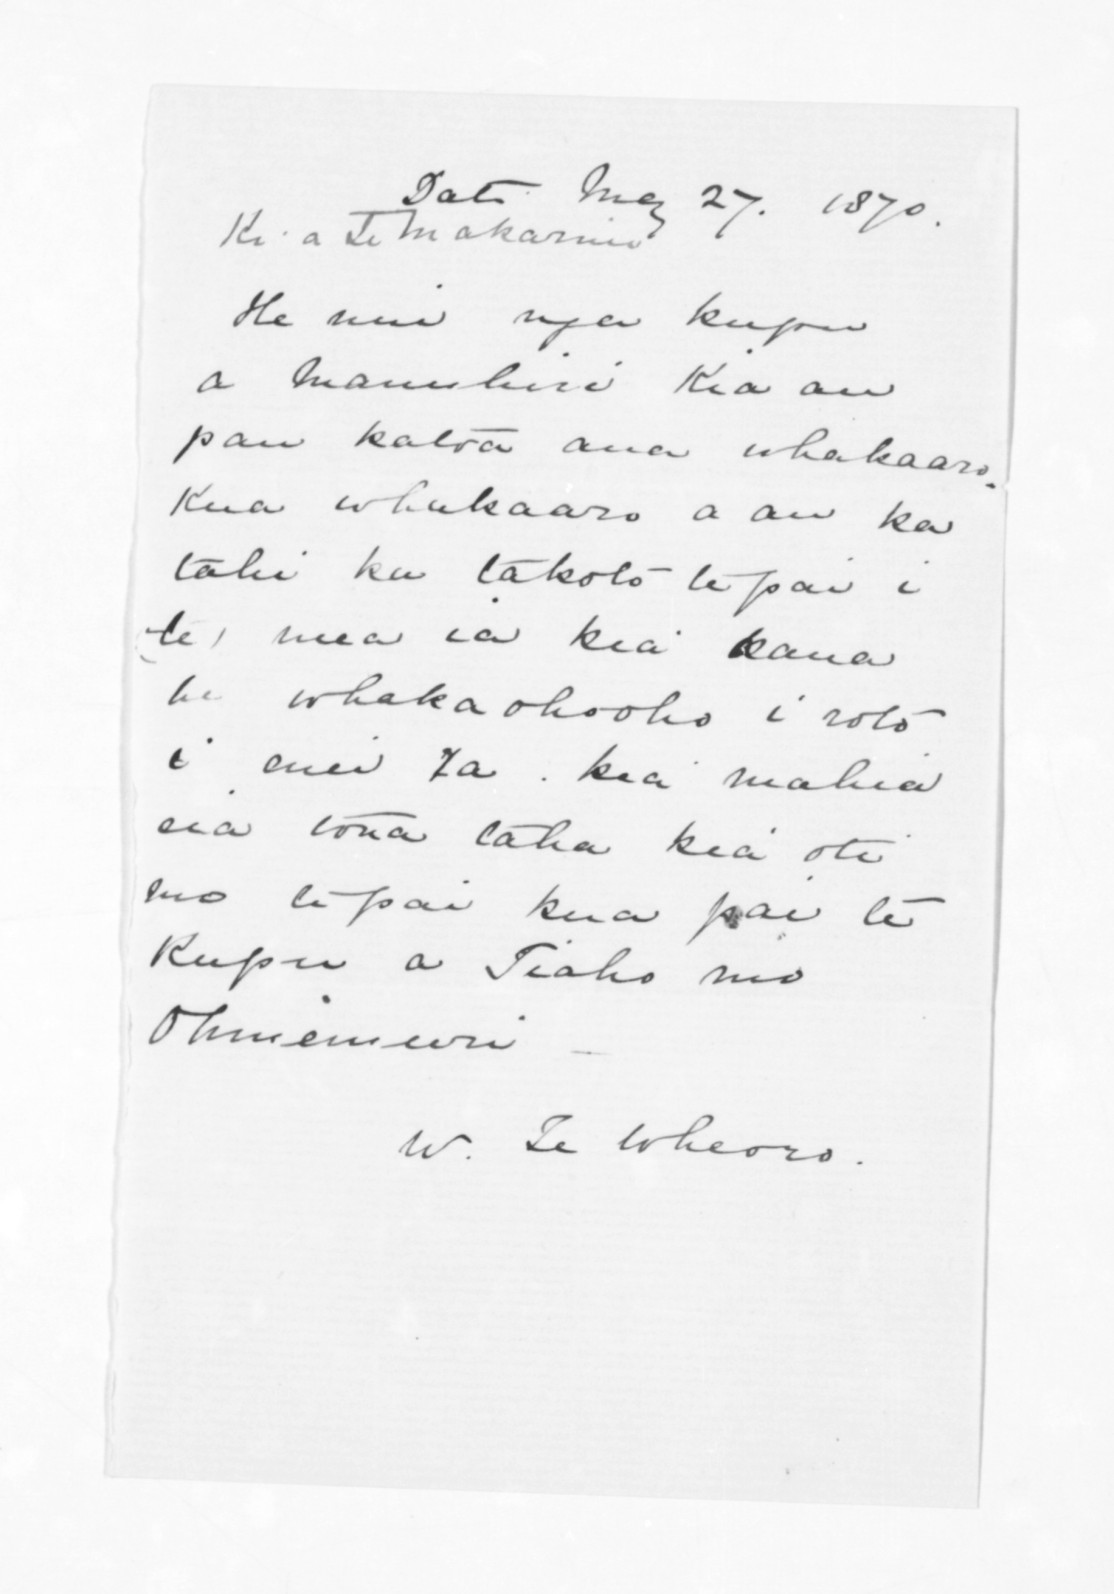 Date May 27. 1870.
Ki a Te Makarini
He nui nga kupu
a Manuhiri Kia au
pau katoa ana whakaaro.
Kua whakaaro a au ka
tahi ka takoto te pai i
(te) mea ia kia kaua
he whakaohooho i roto
i enei ra. kia mahia
eia tona taha kia oti
mo te pai kua pai te
Kupu a Tiaho mo
Ohinemuri -
W. Te Wheoro.